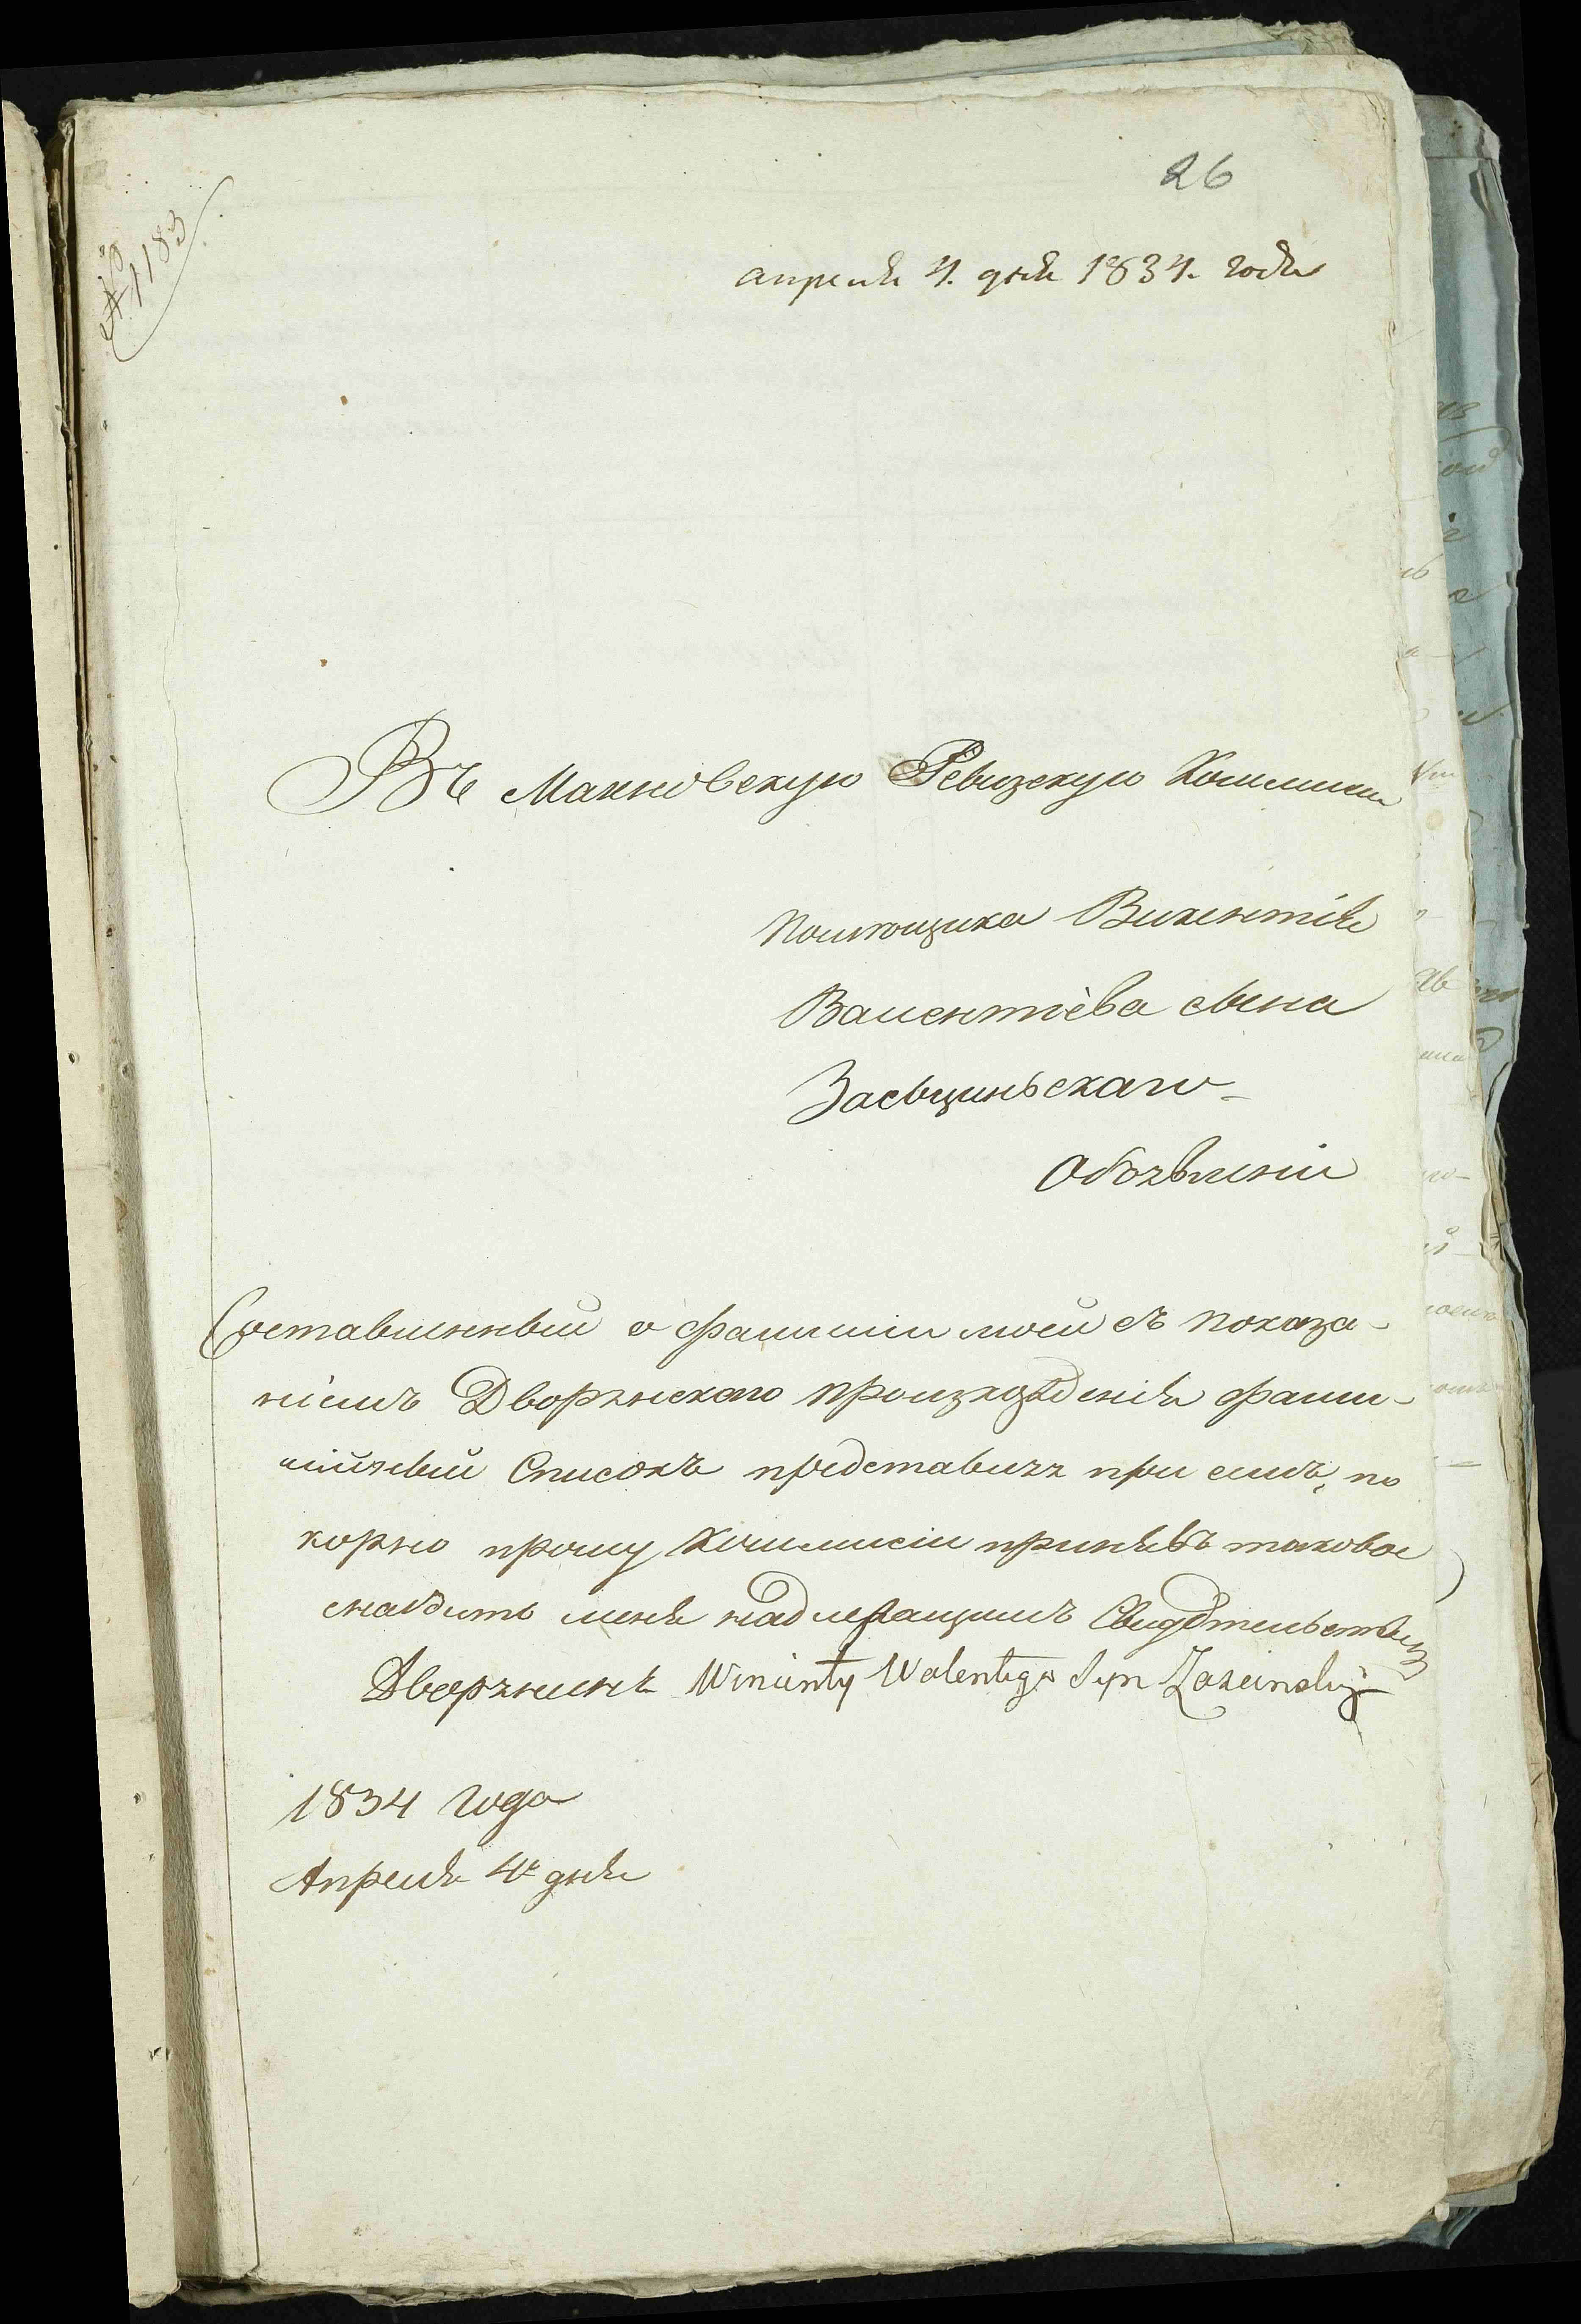 26
№ 1183
апреля 4. дня 1834. года
Въ Махновскую Ревизскую Коммисію
Помѣщика Викентія
Валентіева сына
Засьциньскаго
Объявленіе
Составленный о фамиліи моей съ показа-
ніемъ Дворянскаго произхожденія фами-
лійный Списокъ представляя при семъ, по
корно прошу Коммисіи принявъ таковое
снабдить меня надлежащимъ Свидѣтельствомъ
Дворянинъ Wincenty Walentego Syn Zascinskij
1834 года
Апреля 4 дня